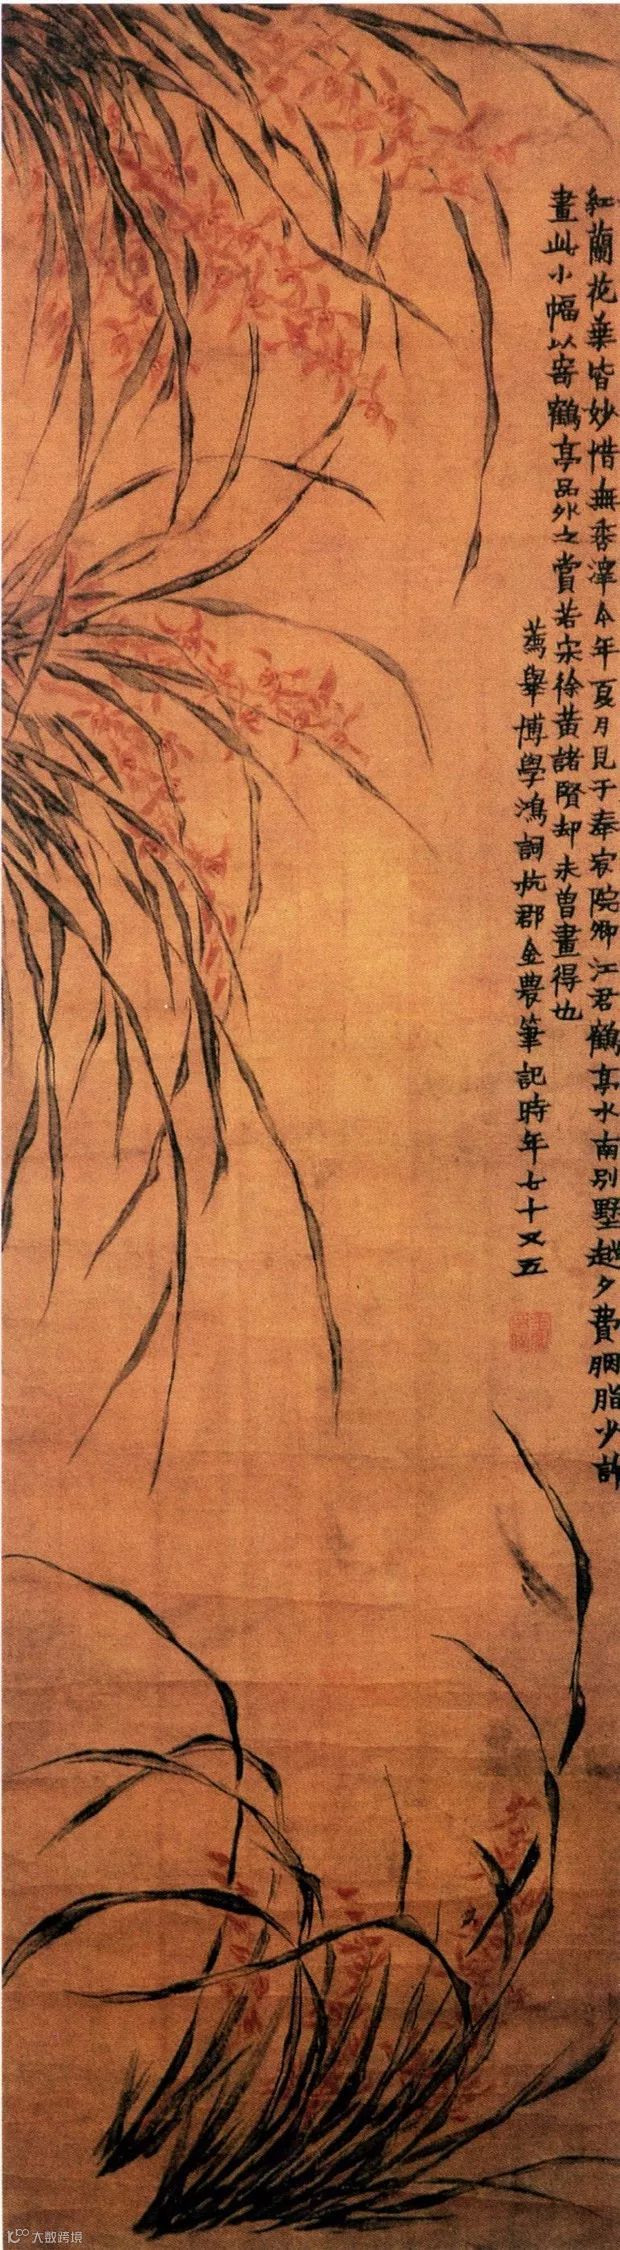 紅蘭花葉皆妙惜無香澤今年夏月見于奉宸院卿江君鶴亭水南別墅越夕費胭脂少許
畫此小幅以寄鶴亭品外之賞若宋徐黃諸賢却未曾畫得也
薦舉博學鴻詞杭郡金農筆記時年七十又五
大數跨境